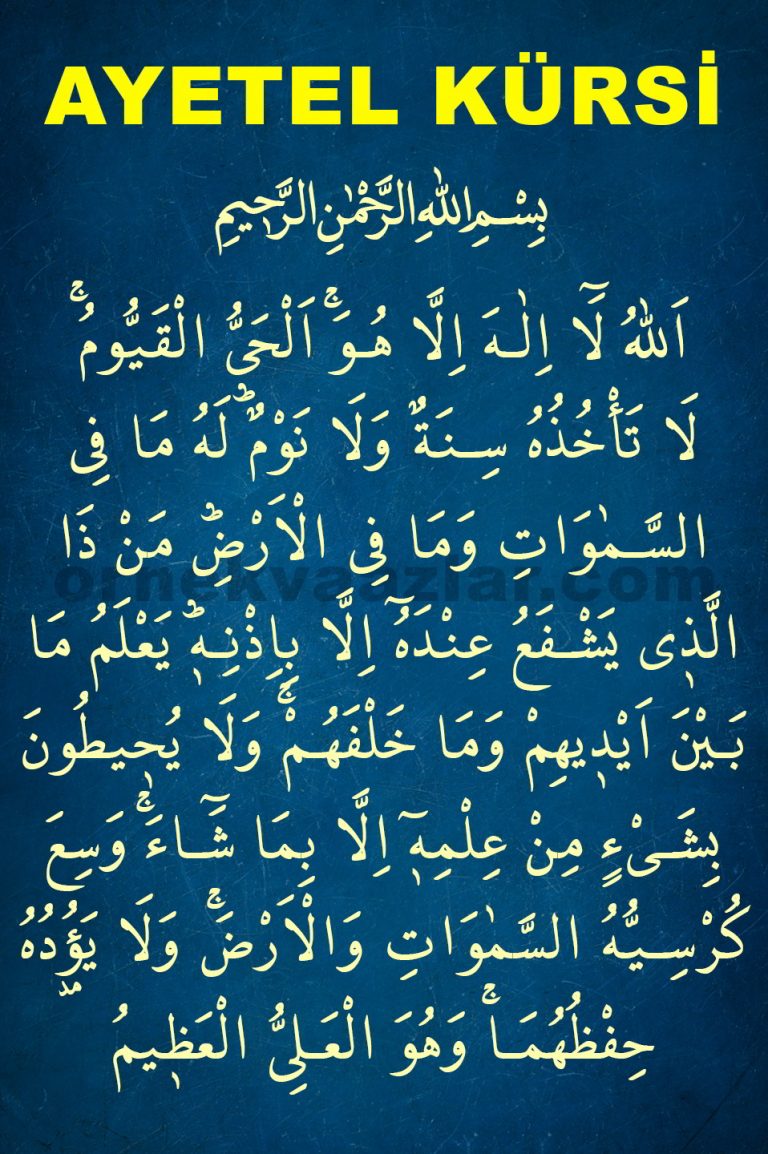 AYETEL KÜRSİ
بِسْمِ اللّٰهِ الرَّحْمٰنِ الرَّحٖيمِ
اَللّٰهُ لَٓا اِلٰهَ اِلَّا هُوَۚ اَلْحَيُّ الْقَيُّومُۚ
لَا تَأْخُذُهُ سِنَةٌ وَلَا نَوْمٌؕ لَهُ مَا فِى
السَّمٰوَاتِ وَمَا فِى الْاَرْضِؕ مَنْ ذَا
ornekvaazlar.com
الَّذٖى يَشْفَعُ عِنْدَهُٓ اِلَّا بِاِذْنِهٖؕ يَعْلَمُ مَا
بَيْنَ اَيْدٖيهِمْ وَمَا خَلْفَهُمْۚ وَلَا يُحٖيطُونَ
بِشَىْءٍ مِنْ عِلْمِهٖٓ اِلَّا بِمَا شَٓاءَۚ وَسِعَ
كُرْسِيُّهُ السَّمٰوَاتِ وَالْاَرْضَۚ وَلَا يَؤُدُهُ
حِفْظُهُمَاۚ وَهُوَ الْعَلِىُّ الْعَظٖيمُ